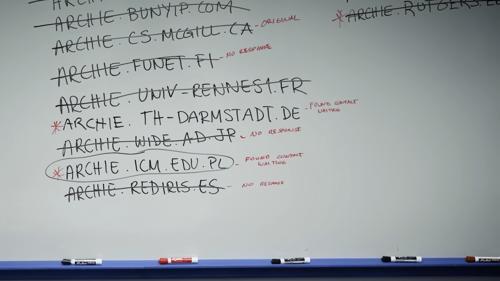 ARCHIE.BUNYIP.COM
ARCHIE.CS.MCGILL.CA - ORIGINAL
ARCHIE.FUNET.FI - NO RESPONSE
ARCHIE.UNIV-RENNES1.FR
*ARCHIE.TH-DARMSTADT.DE - FOUND CONTACT
WAITING
ARCHIE.WIDE.AD.JP - NO RESPONSE
*ARCHIE.ICM.EDU.PL - FOUND CONTACT
WAITING
ARCHIE.REDIRIS.ES - NO RESPONSE
*ARCHIE.RUTGERS.E